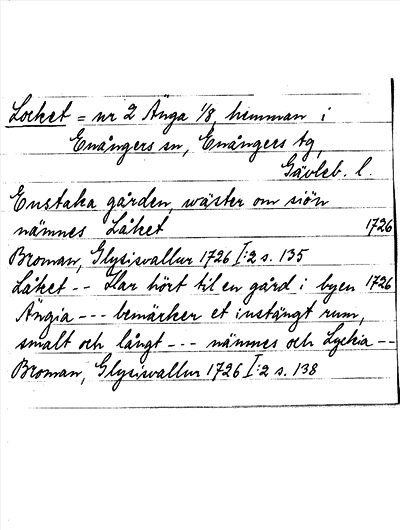 Locket = nr 2 Änga 1/8 hemman i
Enångers sn, Enångers tg,
Gävleb. l.
Enstaka gården, wäster om siön
nämnes Låket 1726
Broman, Glysisvallur 1726 I:2 s. 135
Låket -- Har hört til en gård i byen 1726
Ängia --- bemärker et instängt rum,
smalt och långt --- nämnes och Lyckia --
Broman, Glysisvallur 1726 I:2 s. 138